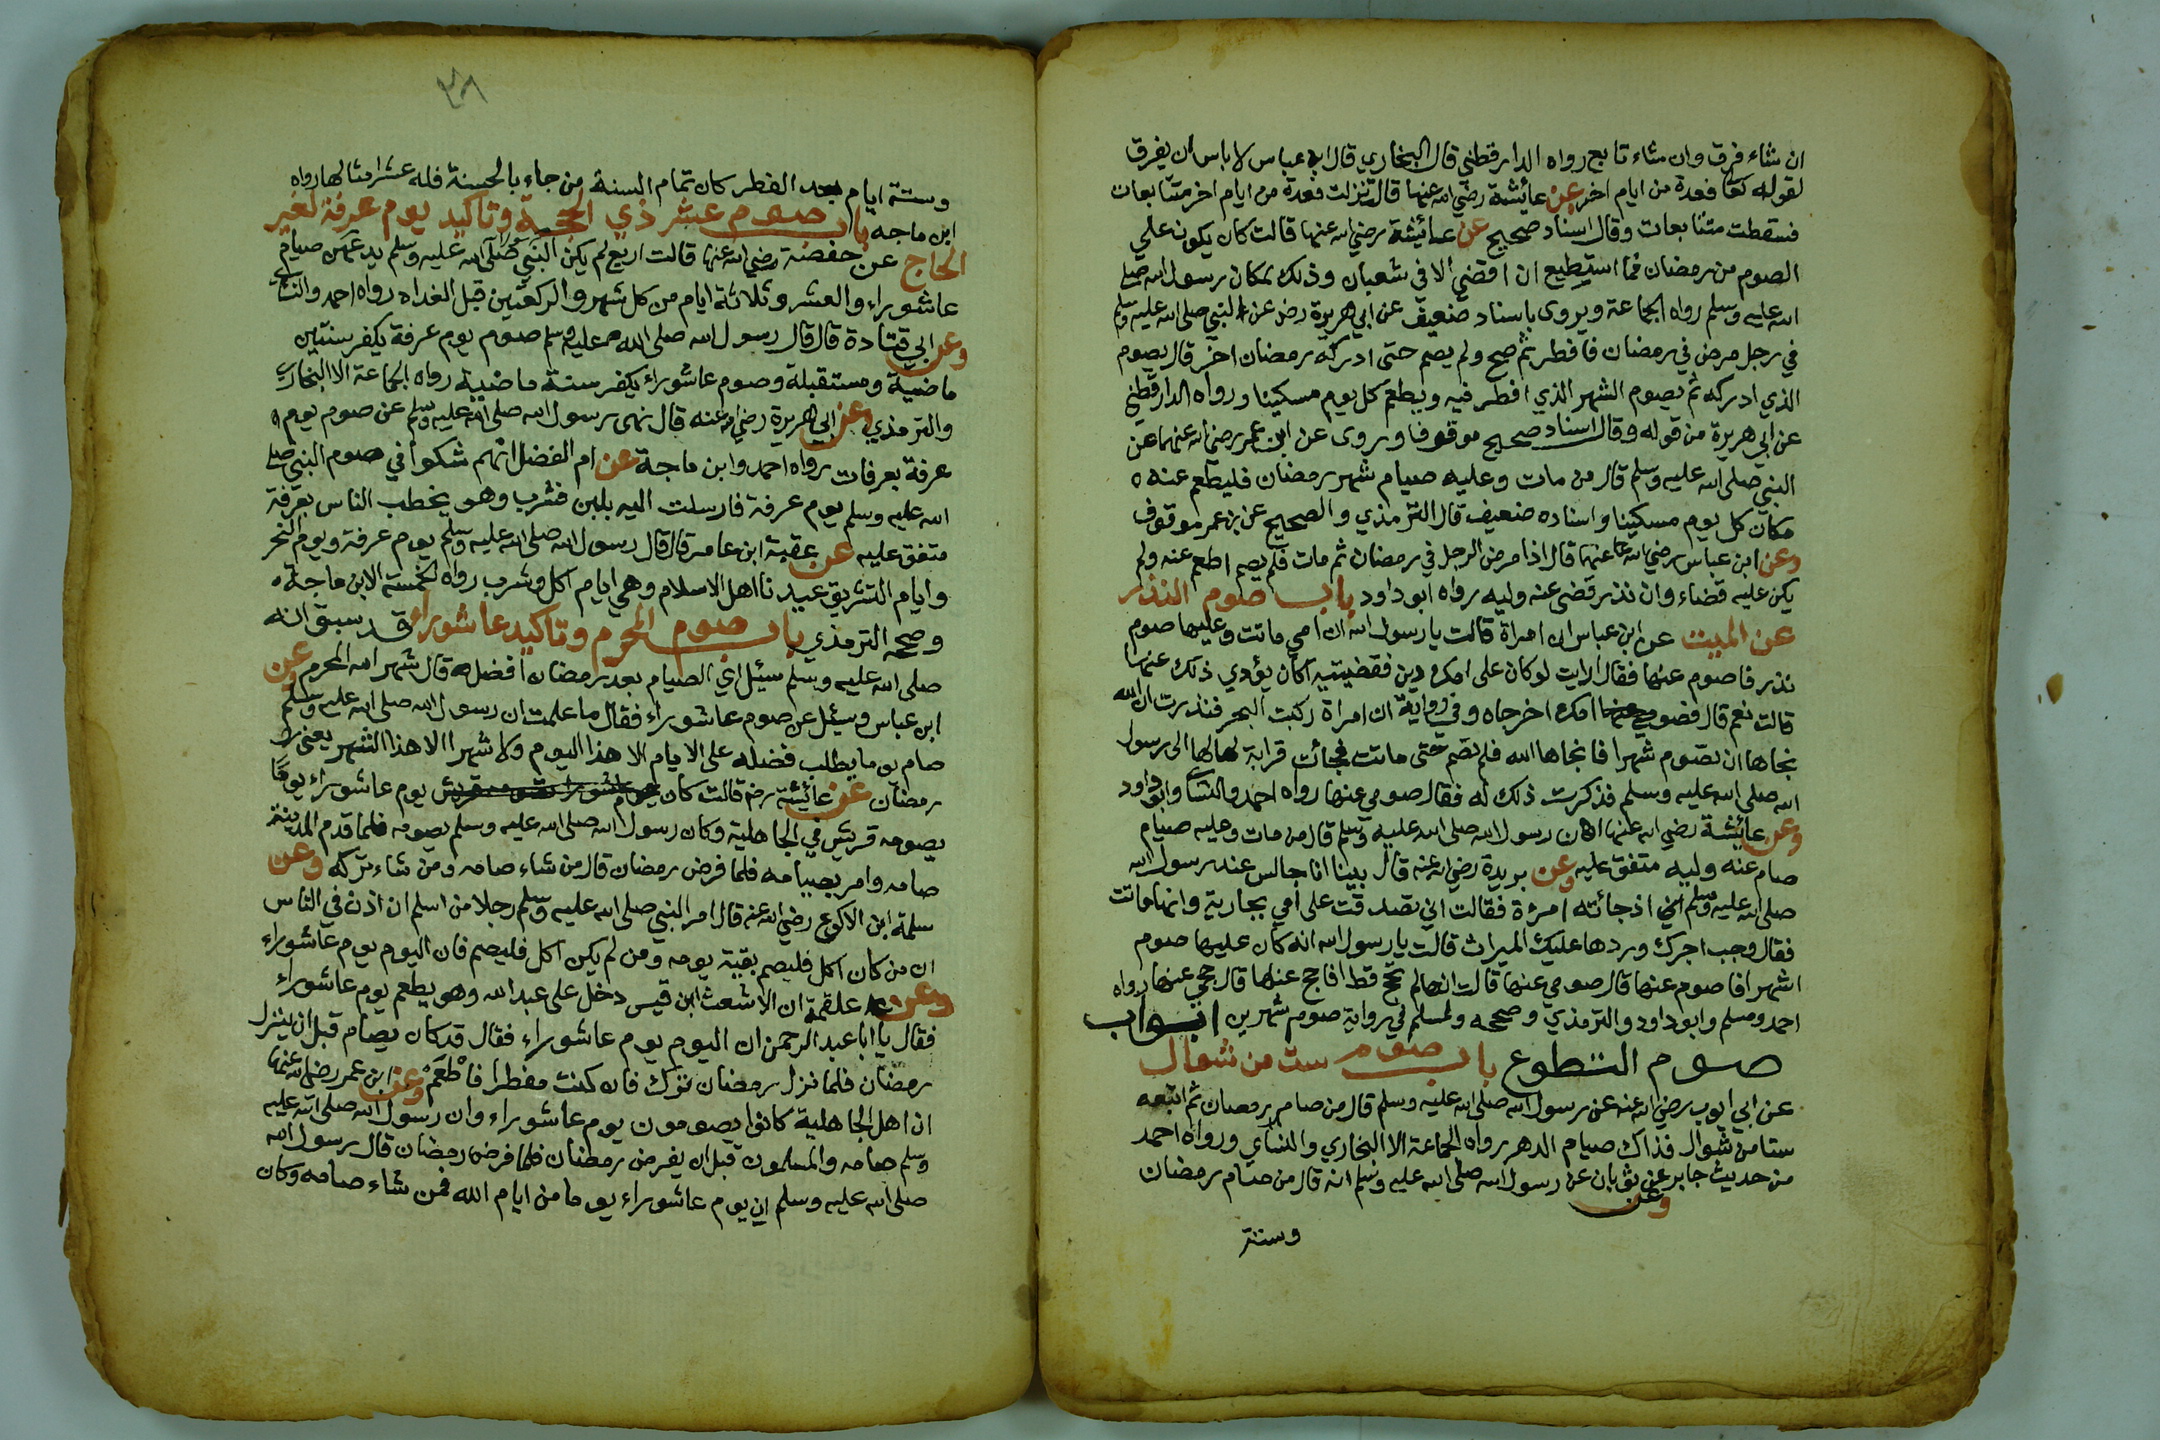 ان شاء فرق وان شاء تابع رواه الدارقطني قال البخاري قال ابن عباس لا باس ان يفرق
لقوله تعا فعدة من ايام اخر عن عائشة رضي الله عنها قالت نزلت فعدة من ايام اخر متتابعات
فسقطت متتابعات وقال اسناد صحيح عن عائشة رضي الله عنها قالت كان يكون علي
الصوم من رمضان فما استطيع ان اقضي الا في شعبان وذلك لمكان رسول الله صلى
الله عليه وسلم رواه الجماعة ويروى باسناد ضعيف عن ابي هريرة رض عن النبي صلى الله عليه وسلم
في رجل مرض في رمضان فافطر ثم صح ولم يصم حتى ادركه رمضان اخر قال يصوم
الذي ادركه ثم يصوم الشهر الذي افطر فيه ويطعم كل يوم مسكينا ورواه الدارقطني
عن ابي هريرة من قوله وقال اسناد صحيح موقوفا وروى عن ابن عمر رضي الله عنهما عن
النبي صلى الله عليه وسلم قال من مات وعليه صيام شهر رمضان فليطعم عنه ه
مكان كل يوم مسكينا واسناده ضعيف قال الترمذي والصحيح عن بن عمر موقوف
وعن ابن عباس رضي الله عنهما قال اذا مرض الرجل في رمضان ثم مات فلم يصم اطعم عنه ولم
يكن عليه قضاء وان نذر قضى عنه وليه رواه ابو داود باب صوم النذر
عن الميت عن ابن عباس ان امراة قالت يا رسول الله ان امي ماتت وعليها صوم
نذر فاصوم عنها فقال ارايت لو كان على امك دين فقضيتيه اكان يؤدي ذلك عنها
قالت نعم قال فصومي عن امك اخرجاه وفي رواية ان امراة ركبت البحر فنذرت ان الله
نجاها ان تصوم شهرا فانجاها الله فلم تصم حتى ماتت فجائت قرابة لها الى رسول
الله صلى الله عليه وسلم فذكرت ذلك له فقال صومي عنها رواه احمد والنسا وابو داود
وعن عائشة رضي الله عنها ان رسول الله صلى الله عليه وسلم قال من مات وعليه صيام
صام عنه وليه متفق عليه وعن بريدة رضي الله عنه قال بينا انا جالس عند رسول الله
صلى الله عليه وسلم اذ جائته امرؤة فقالت اني تصدقت على امي بجارية وانها ماتت
فقال وجب اجرك وردها عليك الميراث قالت يا رسول الله انه كان عليها صوم
اشهر افاصوم عنها قال صومي عنها قالت انها لم تحج قط افاحج عنها قال حجي عنها رواه
احمد ومسلم وابو داود والترمذي وصححه ولمسلم في رواية صوم شهرين ابواب
صوم التطوع باب صوم ست من شوال
عن ابي ايوب رضي الله عنه عن رسول الله صلى الله عليه وسلم قال من صام رمضان ثم اتبعه
ستا من شوال فذاك صيام الدهر رواه الجماعة الا البخاري والنساي ورواه احمد
من حديث جابر وعن ثوبان عن رسول الله صلى الله عليه وسلم انه قال من صام رمضان
وستة
وستة ايام بعد الفطر كان تمام السنة من جاء بالحسنة فله عشر امثالها رواه
ابن ماجه باب صوم عشر ذي الحجة وتاكيد يوم عرفة لغير
الحاج عن حفصة رضي الله عنها قالت اربع لم يكن النبي صلى الله عليه وسلم يدعهن صيام
عاشوراء والعشر وثلاثة ايام من كل شهر والركعتين قبل الغداه رواه احمد والنسائ
وعن ابي قتادة قال قال رسول الله صلى الله عليه وسلم صوم يوم عرفة يكفر سنتين
ماضية ومستقبلة وصوم عاشوراء يكفر سنة ماضية رواه الجماعة الا البخاري
والترمذي وعن ابي هريرة رضي الله عنه قال نهى رسول الله صلى الله عليه وسلم عن صوم يوم ه
عرفة بعرفات رواه احمد وابن ماجة عن ام الفضل انهم شكوا في صوم النبي صلى
الله عليه وسلم يوم عرفة فارسلت اليه بلبن فشرب وهو يخطب الناس بعرفة
متفق عليه عن عقبة ابن عامر قال قال رسول الله صلى الله عليه وسلم يوم عرفة ويوم النحر
وايام التشريق عيدنا اهل الاسلام وهي ايام اكل وشرب رواه الخمسة الا بن ماجة ه
وصححه الترمذي باب صوم المحرم وتاكيد عاشوراء قد سبق انه
صلى الله عليه وسلم سئل اي الصيام بعد رمضان افضل قال شهر الله المحرم وعن
ابن عباس وسئل عن صوم عاشوراء فقال ما علمت ان رسول الله صلى الله عليه وسلم
صام يوما يطلب فضله على الايام الا هذا اليوم ولا شهرا الا هذا الشهر يعني
رمضان عن عائشة رضه قالت كان يوم عاشوراء يوما
يصومه قريش في الجاهلية وكان رسول الله صلى الله عليه وسلم يصومه فلما قدم المدينة
صامه وامر بصيامه فلما فرض رمضان قال من شاء صامه ومن شاء تركه وعن
سلمة ابن الاكوع رضي الله عنه قال امر النبي صلى الله عليه وسلم رجلا من اسلم ان اذن في الناس
ان من كان اكل فليصم بقية يومه ومن لم يكن اكل فليصم فان اليوم يوم عاشوراء
وعن علقمة ان الاشعث ابن قيس دخل على عبد الله وهو يطعم يوم عاشوراء
فقال يا ابا عبد الرحمن ان اليوم يوم عاشوراء فقال قد كان يصام قبل ان ينزل
رمضان فلما نزل رمضان ترك فان كنت مفطرا فاطعم وعن ابن عمر رضي الله عنها
ان اهل الجاهلية كانوا يصومون يوم عاشوراء وان رسول الله صلى الله عليه
وسلم صامه والمسلمون قبل ان يفرض رمضان فلما فرض رمضان قال رسول الله
صلى الله عليه وسلم ان يوم عاشوراء يوما من ايام الله فمن شاء صامه وكان